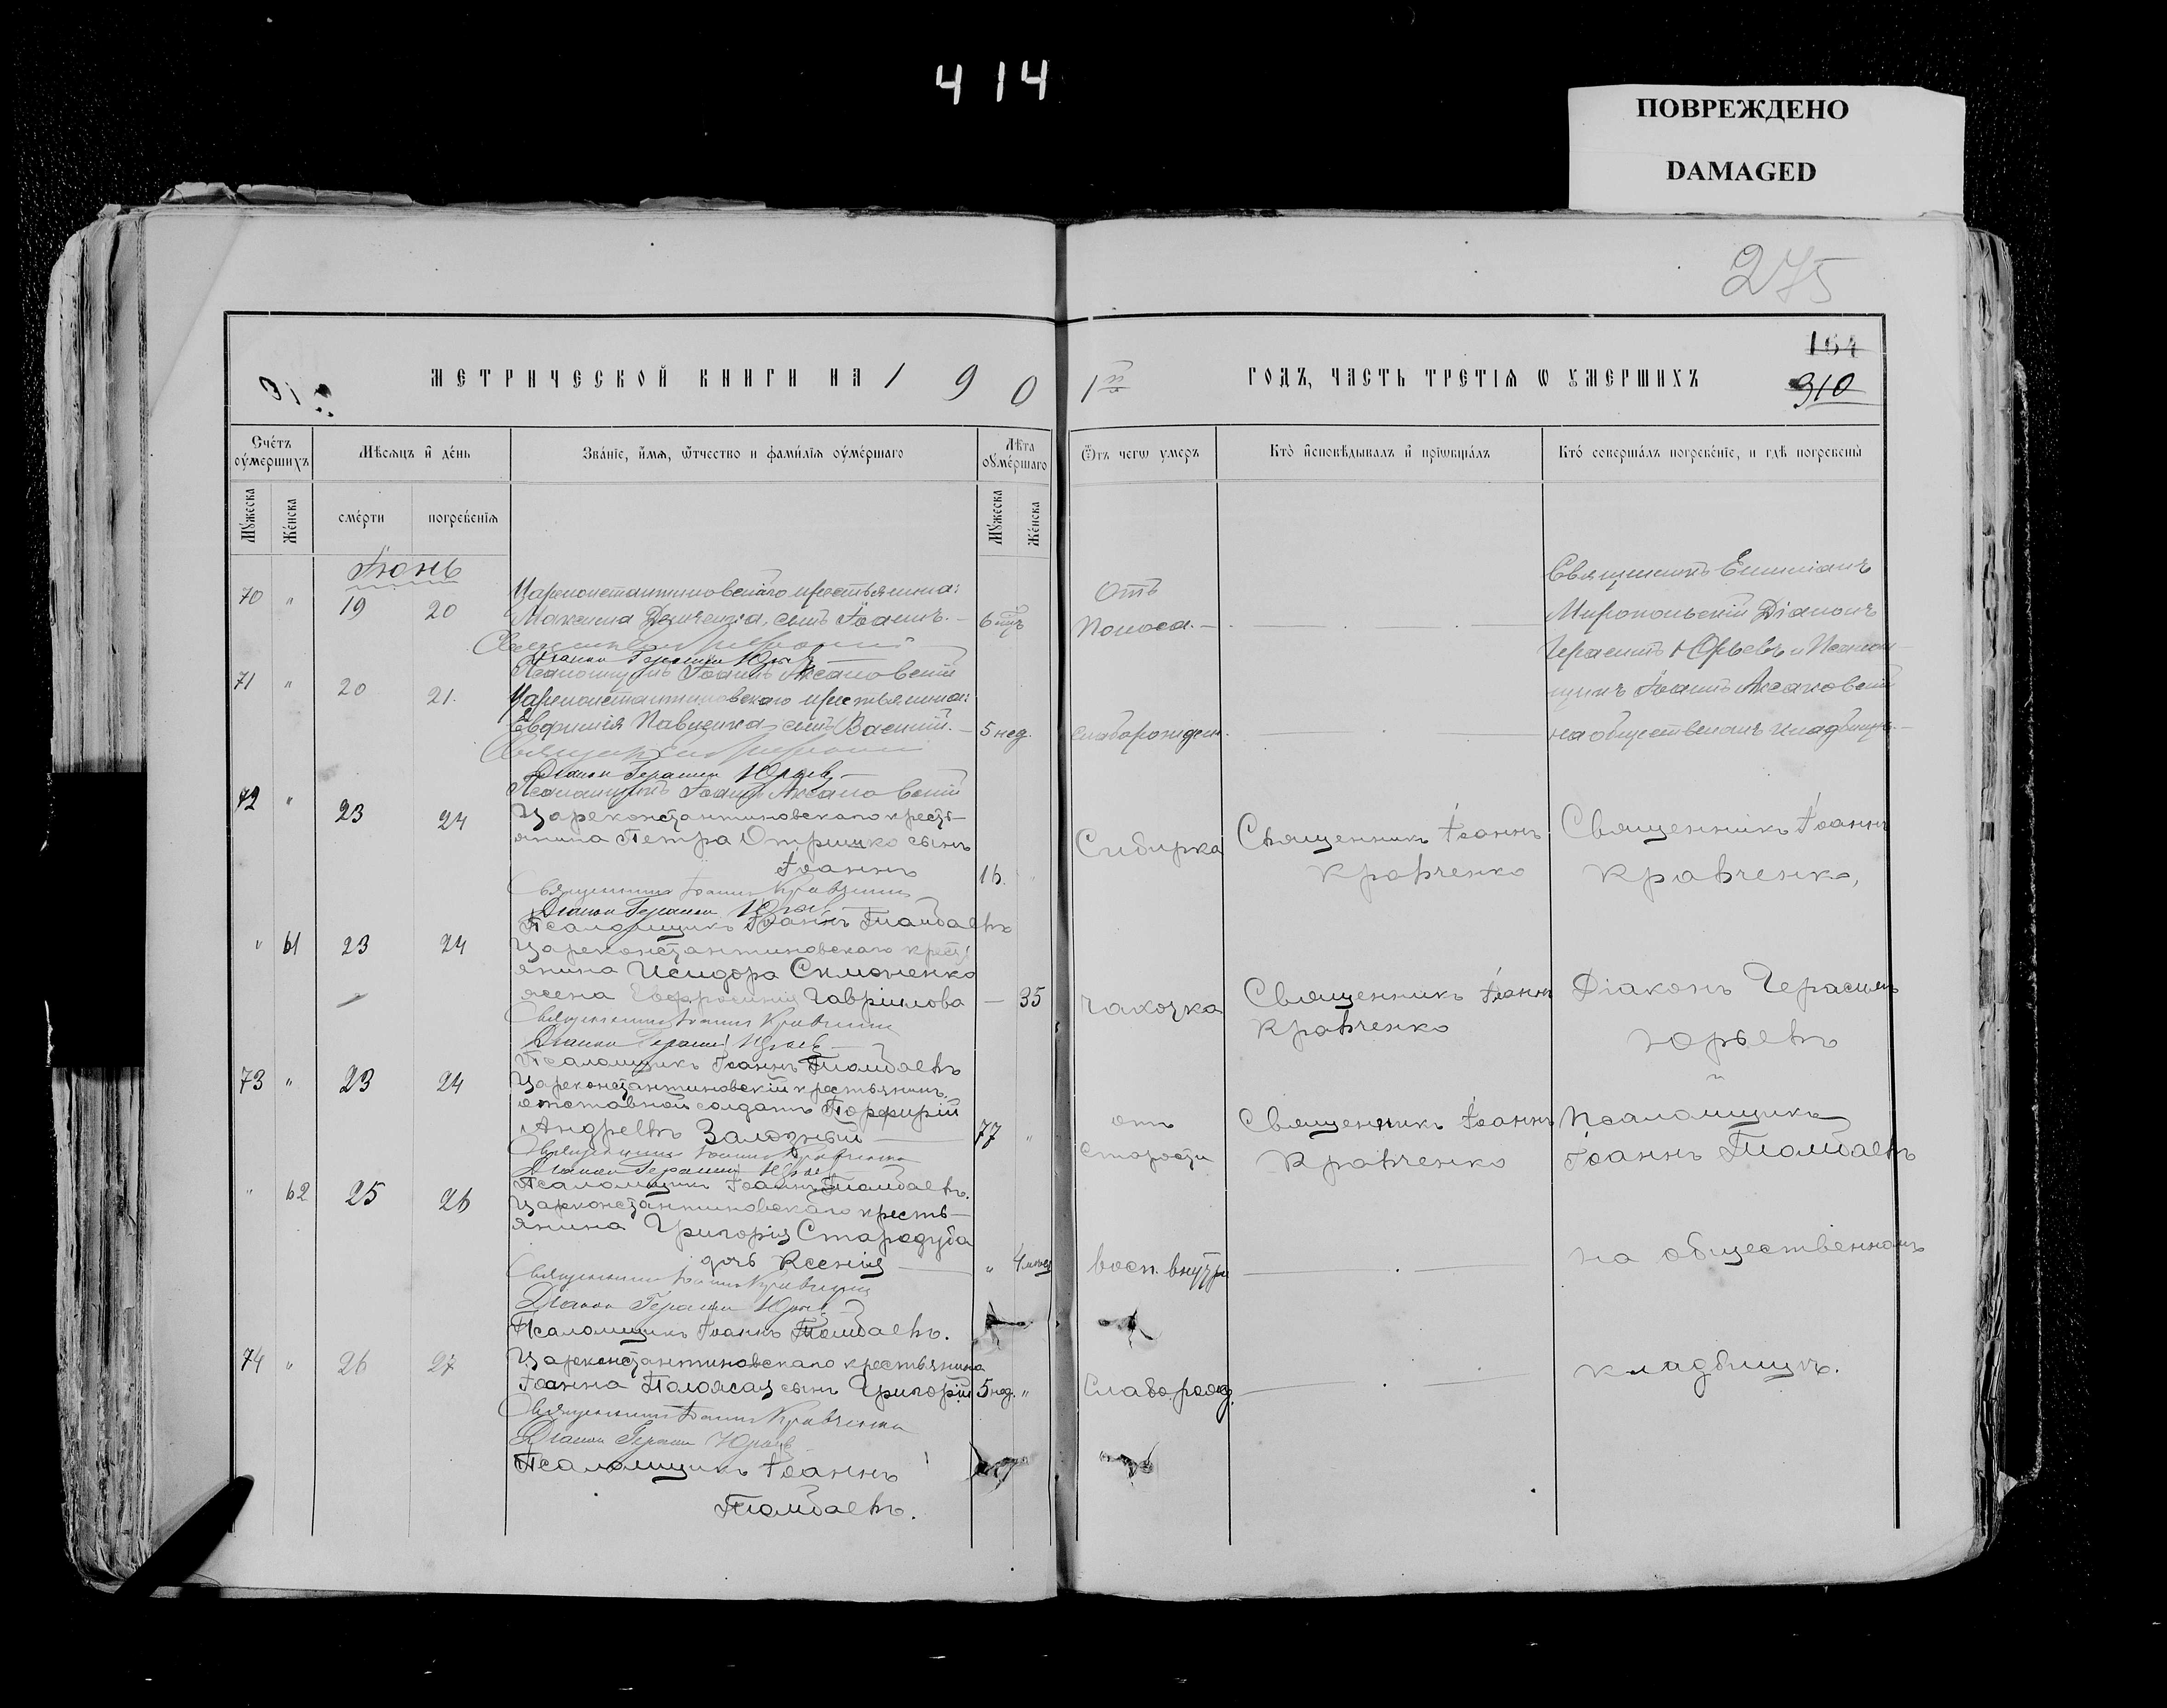 4 14
ПОВРЕЖДЕНО
DAMAGED
275
164
310
МЕТРИЧЕСКОЙ КНИГИ НА 1 9 0 1й ГОДЪ, ЧАСТЬ ТРЕТІѦ Ѡ УМЕРШИХЪ
Счетъ оумершихъ
Мѣсяцъ и день
Званіе, имя, ѿчество и фамилія оумершаго
Лѣта оумершаго
Ѿъ чегѡ умеръ
Кто исповѣдывалъ и пріѡбщалъ
Кто совершалъ погребеніе, и гдѣ погребены
Мужеска
Женска
смерти
погребенія
Мужеска
Женска
Іюнь
70 " 19 20
Цареконстантиновскаго крестьянина:
Максима Демченка, сынъ Іоаннъ. —
6 мц
Отъ
Поноса. —
Діаконъ Герасимъ Юрьевъ
Псаломщикъ Іоаннъ Аксаковскій
71 " 20 21.
Цареконстантиновскаго крестьянина:
Евфимія Павленка, сынъ Василій. —
5 нед.
слаборожден.
Священникъ Емиліанъ
Миропольскій Діаконъ
Герасимъ Юрьевъ и Псалом-
щикъ Іоаннъ Аксаковскій
на общественомъ кладбищѣ. —
Діаконъ Герасимъ Юрьевъ
Псаломщикъ Іоаннъ Аксаковскій
72 " 23 24
Цареконстантиновскаго кресть-
янина Петра Отришко сынъ
Іоаннъ
16. "
Сибирка
Священникъ Іоаннъ
Кравченко
Священникъ Іоаннъ
Кравченко,
Священникъ Іоаннъ Кравченко
Діаконъ Герасимъ Юрьевъ
Псаломщикъ Іоаннъ
" 61 23 24
Цареконстантиновскаго крест
янина Исидора Симоненко
жена Евфросинія Гавріилова
— 35
чахотка
Священникъ Іоаннъ
Кравченко
Діаконъ Герасимъ
Юрьевъ
и
Священникъ Іоаннъ Кравченко
Діаконъ Герасимъ Юрьевъ
Псаломщикъ Іоаннъ
73 " 23 24
Цареконстантиновскій крестьянинъ,
отставной солдатъ Порфирій
Андреевъ Залозный —
77 "
отъ
старости
Священникъ Іоаннъ
Кравченко
Псаломщикъ
Іоаннъ
Священникъ Іоаннъ Кравченко
Діаконъ Герасимъ Юрьевъ
Псаломщикъ Іоаннъ
" 62 25 26
Цареконстантиновскаго кресть-
янина Григорія Стародуба
дочь Ксенія —
" 4 мѣсяц
восп. внутр
на общественномъ
Священникъ Іоаннъ Кравченко
Діаконъ Герасимъ Юрьевъ
Псаломщикъ Іоаннъ
74 " 26 27
Цареконстантиновскаго крестьянина
Іоанна сынъ Григорій
5 нед. "
Слаборожд.
кладбищѣ.
Священникъ Іоаннъ Кравченко
Діаконъ Герасимъ Юрьевъ
Псаломщикъ Іоаннъ